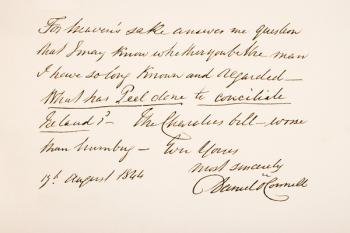 For heaven's sake answer me question
that I may know whether you be the man
I have so long known and regarded —
What has Peel done to conciliate
Ireland? — The Charities bill — worse
than humbug — Ever Yours
most sincerely
17th August 1844 Daniel O'Connell